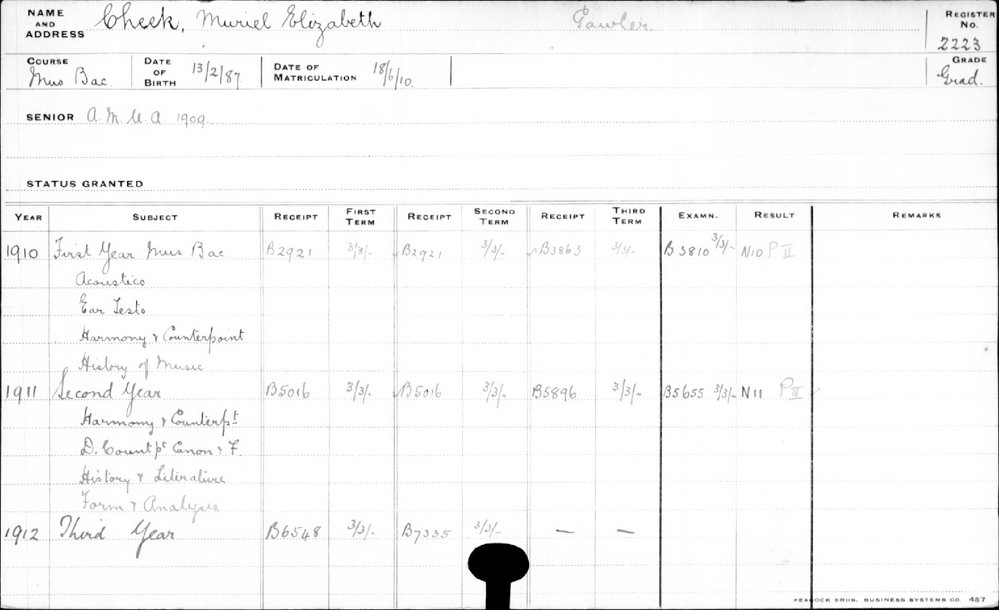 NAME AND ADDRESS Cheek, Muriel Elizabeth Gawler REGISTER No. 2223
COURSE Mus Bac. DATE OF BIRTH 13/2/87 DATE OF MATRICULATION 18/6/10. GRADE Grad.
SENIOR A.M.U.A 1909
STATUS GRANTED
YEAR SUBJECT RECEIPT FIRST TERM RECEIPT SECOND TERM RECEIPT THIRD TERM EXAMN. RESULT REMARKS
1910 First Year Mus Bac B2921 3/3/- B2921 3/3/- B3863 3/3/- B3810 3/3/- N10 P II
Acoustics
Ear Tests
Harmony & Counterpoint
History of Music
1911 Second Year B5016 3/3/- B5016 3/3/- B5896 3/3/- B5655 3/3/- N11 P III
Harmony & Counterpt
D. Countpt Canon & F.
History & Literature
Form & Analysis
1912 Third Year B6548 3/3/- B7335 3/3/- — —
PEACOCK BROS. BUSINESS SYSTEMS CO. 457